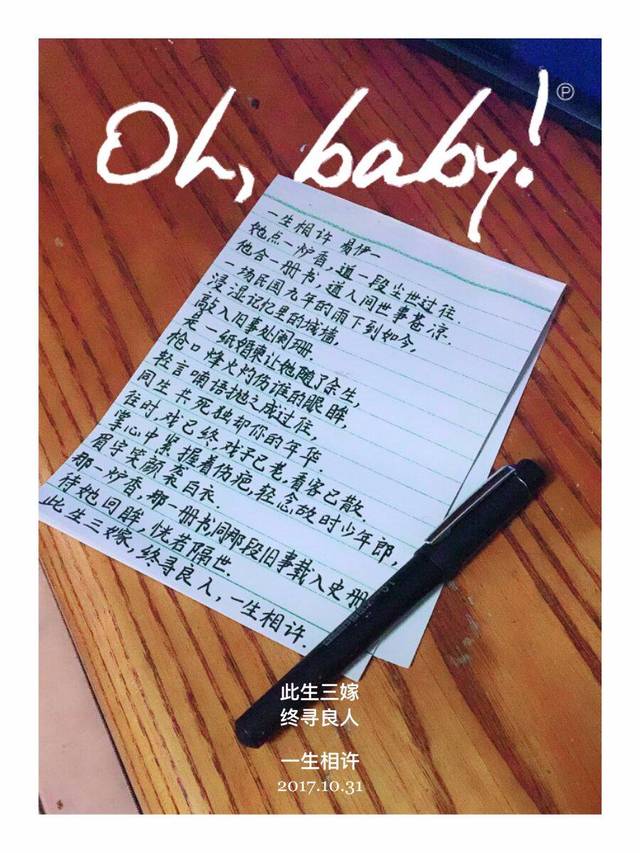 Oh, baby!
Ⓟ
一生相许 易伊一
她点一炉香，道一段尘世过往.
他合一册书，道人间世事苍凉.
一场民国九年的雨下到如今，
浸湿记忆里的城墙.
敲入旧事处阑珊.
是一纸婚柬让她随了余生，
枪口烽火灼伤谁的眼眸，
轻言喃语抛之成过往，
同生共死独却你的年华.
往时戏已终戏子已老，看客已散.
掌心中紧握着伤疤，轻念故时少年郎，
眉宇笑颜素白衣.
那一炉香，那一册书同那段旧事载入史册
待她回眸，恍若隔世.
此生三嫁，终寻良人，一生相许.
此生三嫁
终寻良人
一生相许
2017.10.31